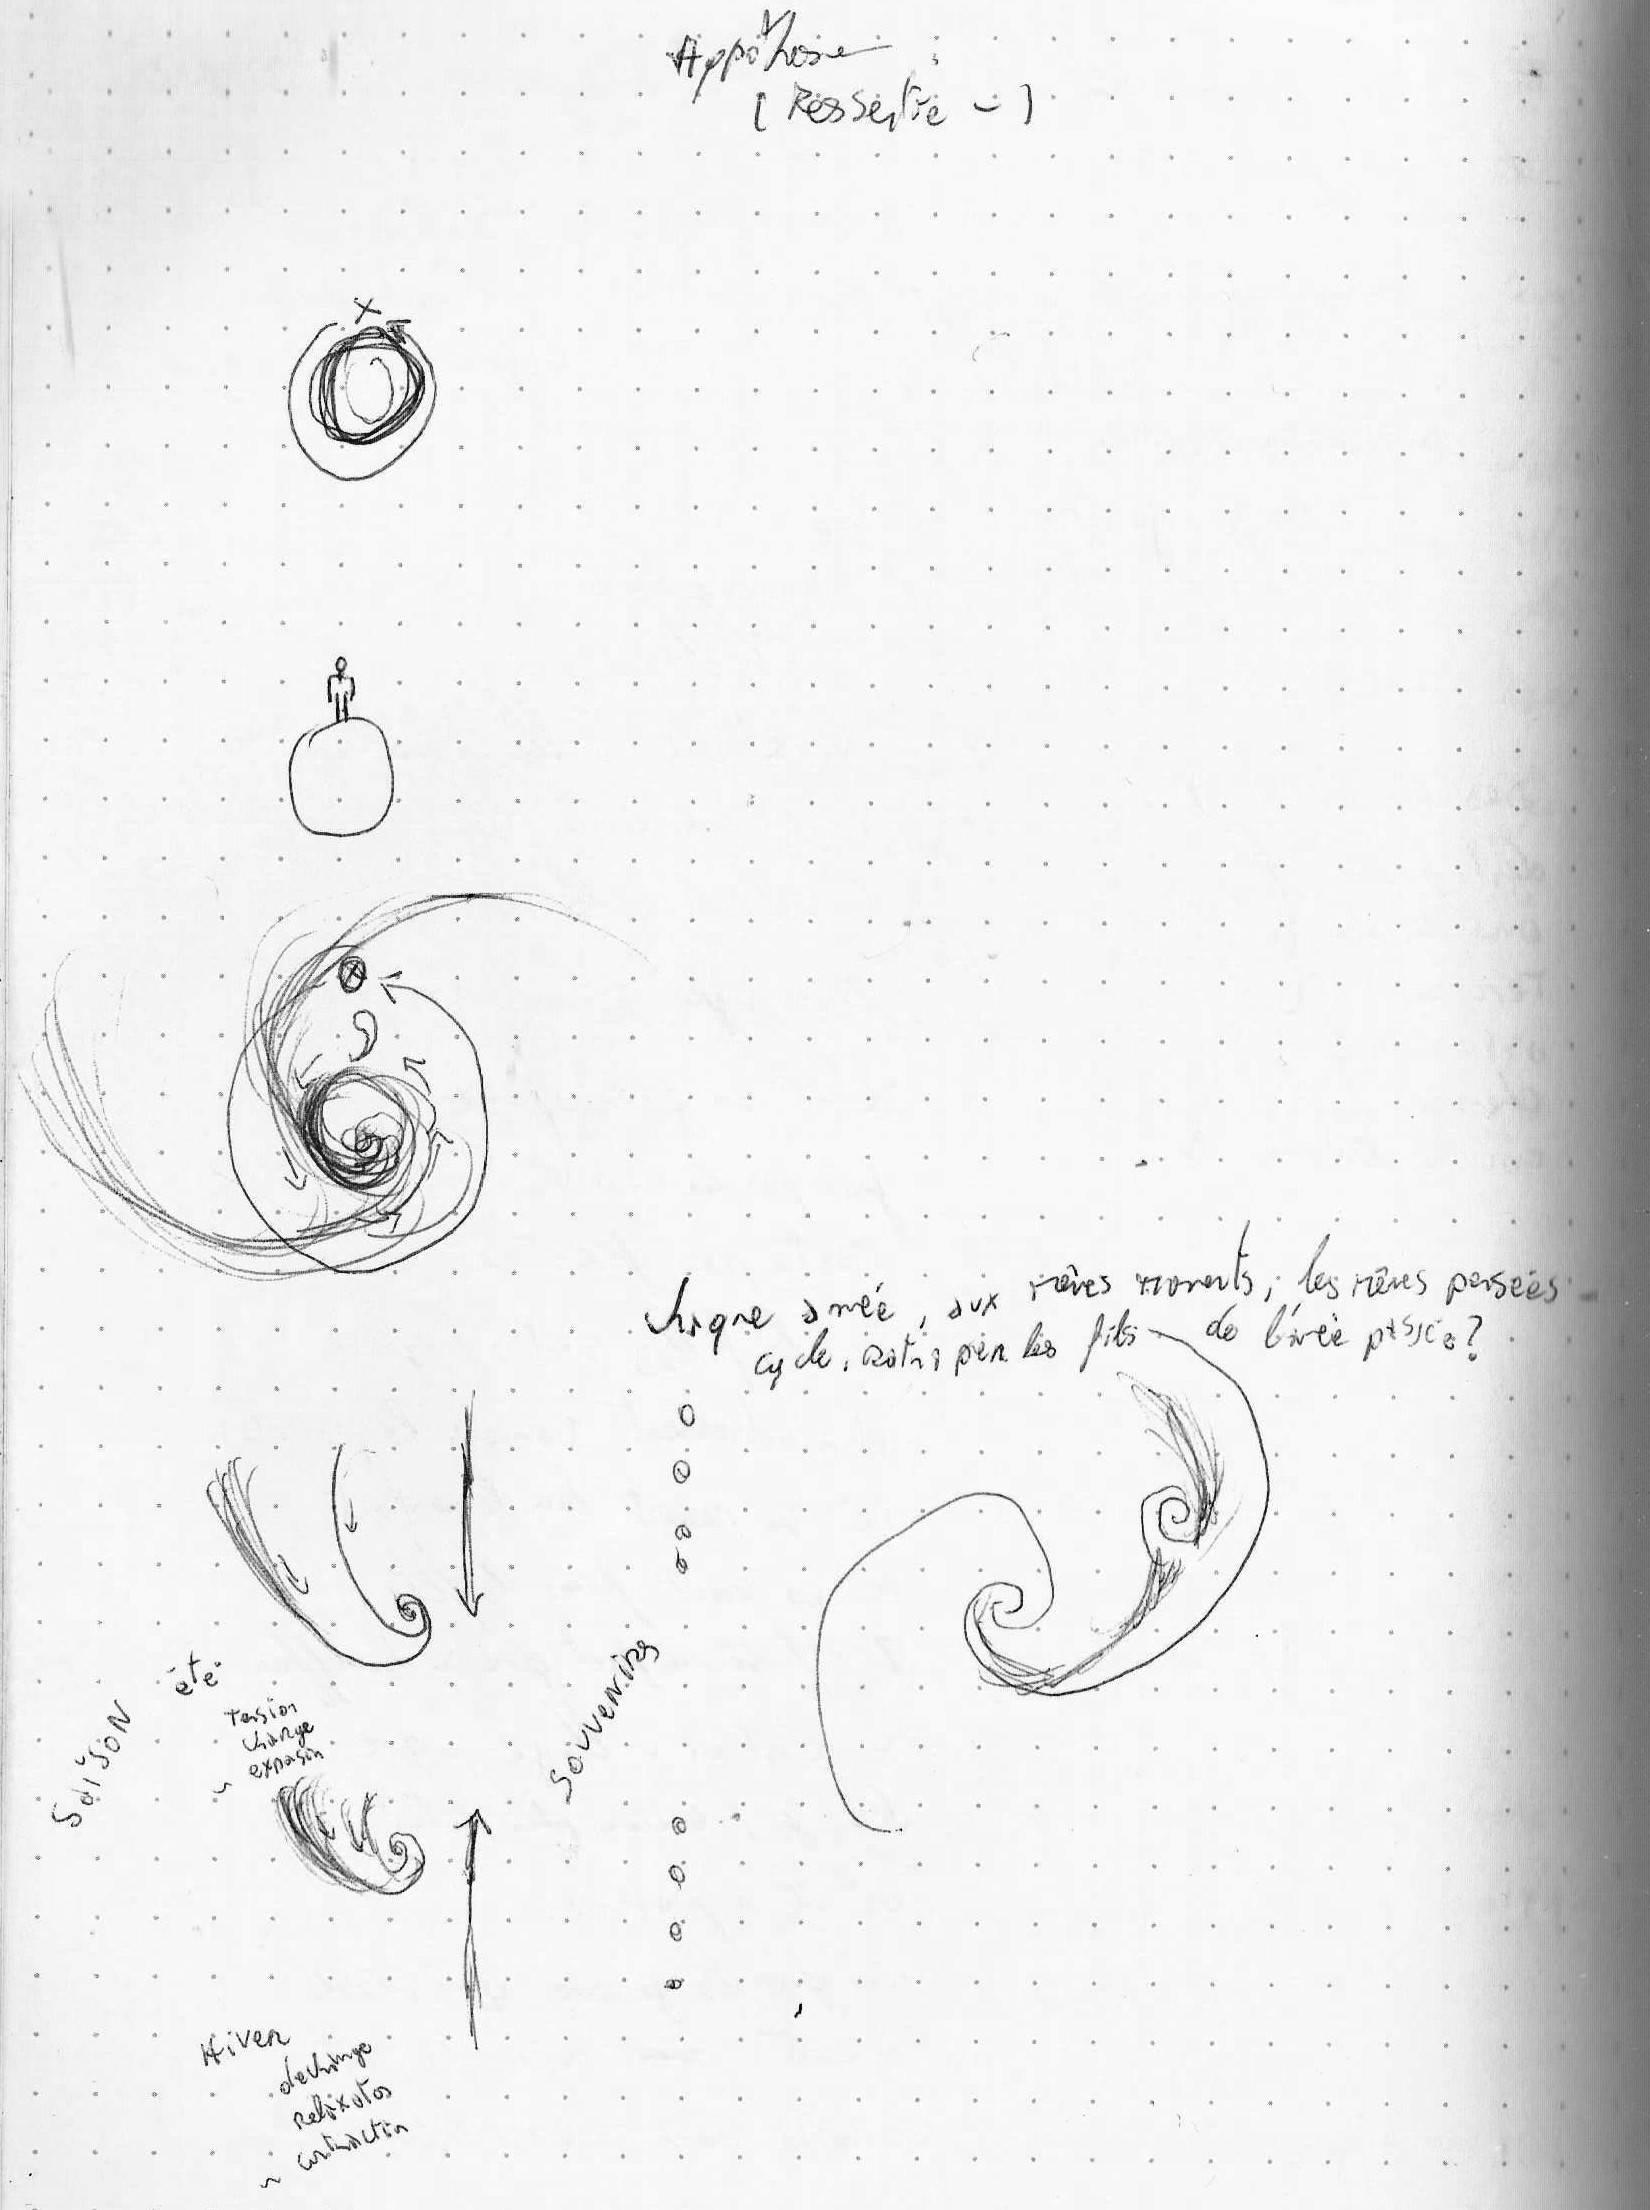 (Ressentie -)
chaque année, aux mêmes moments, les mêmes pensées
cycle, par les fils de l'année passée?
été
Tension
charge
expansion
saison
souvenirs
Hiver
décharge
relaxation
~ contraction